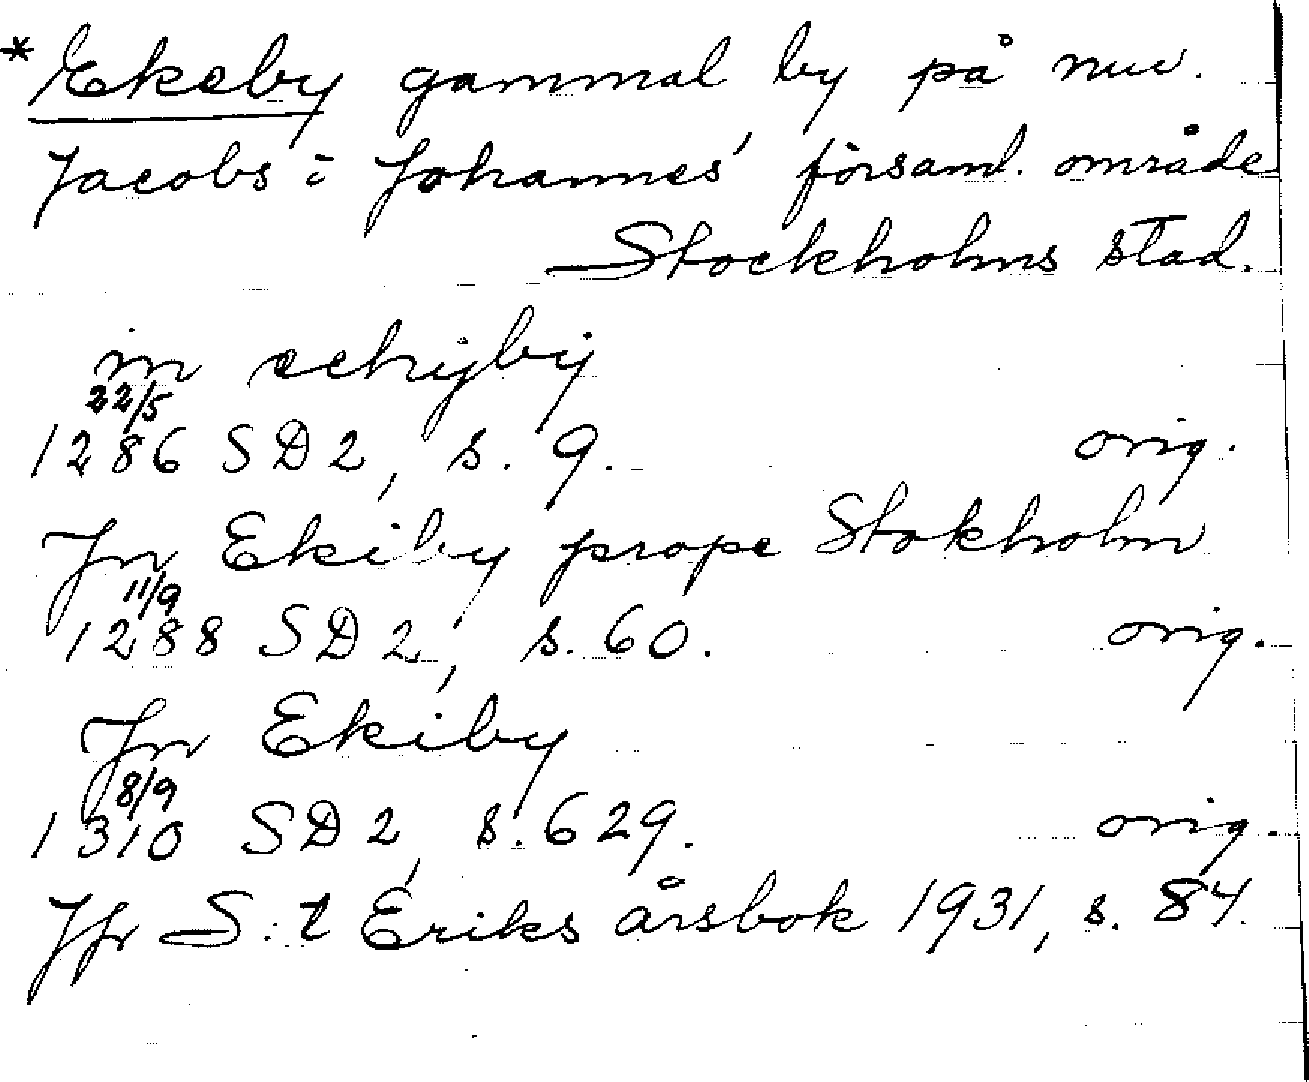 *Ekeby gammal by på nuv.
Jacobs o Johannes' församl. område
Stockholms stad.
in echyby
22/5
1286 SD 2, s. 9. orig.
Jn Ekiby prope Stokholm
11/9
1288 SD 2, s. 60. orig.
Jn Ekiby
8/9
1310 SD 2, s. 629. orig.
Jfr S:t Eriks årsbok 1931, s. 84.